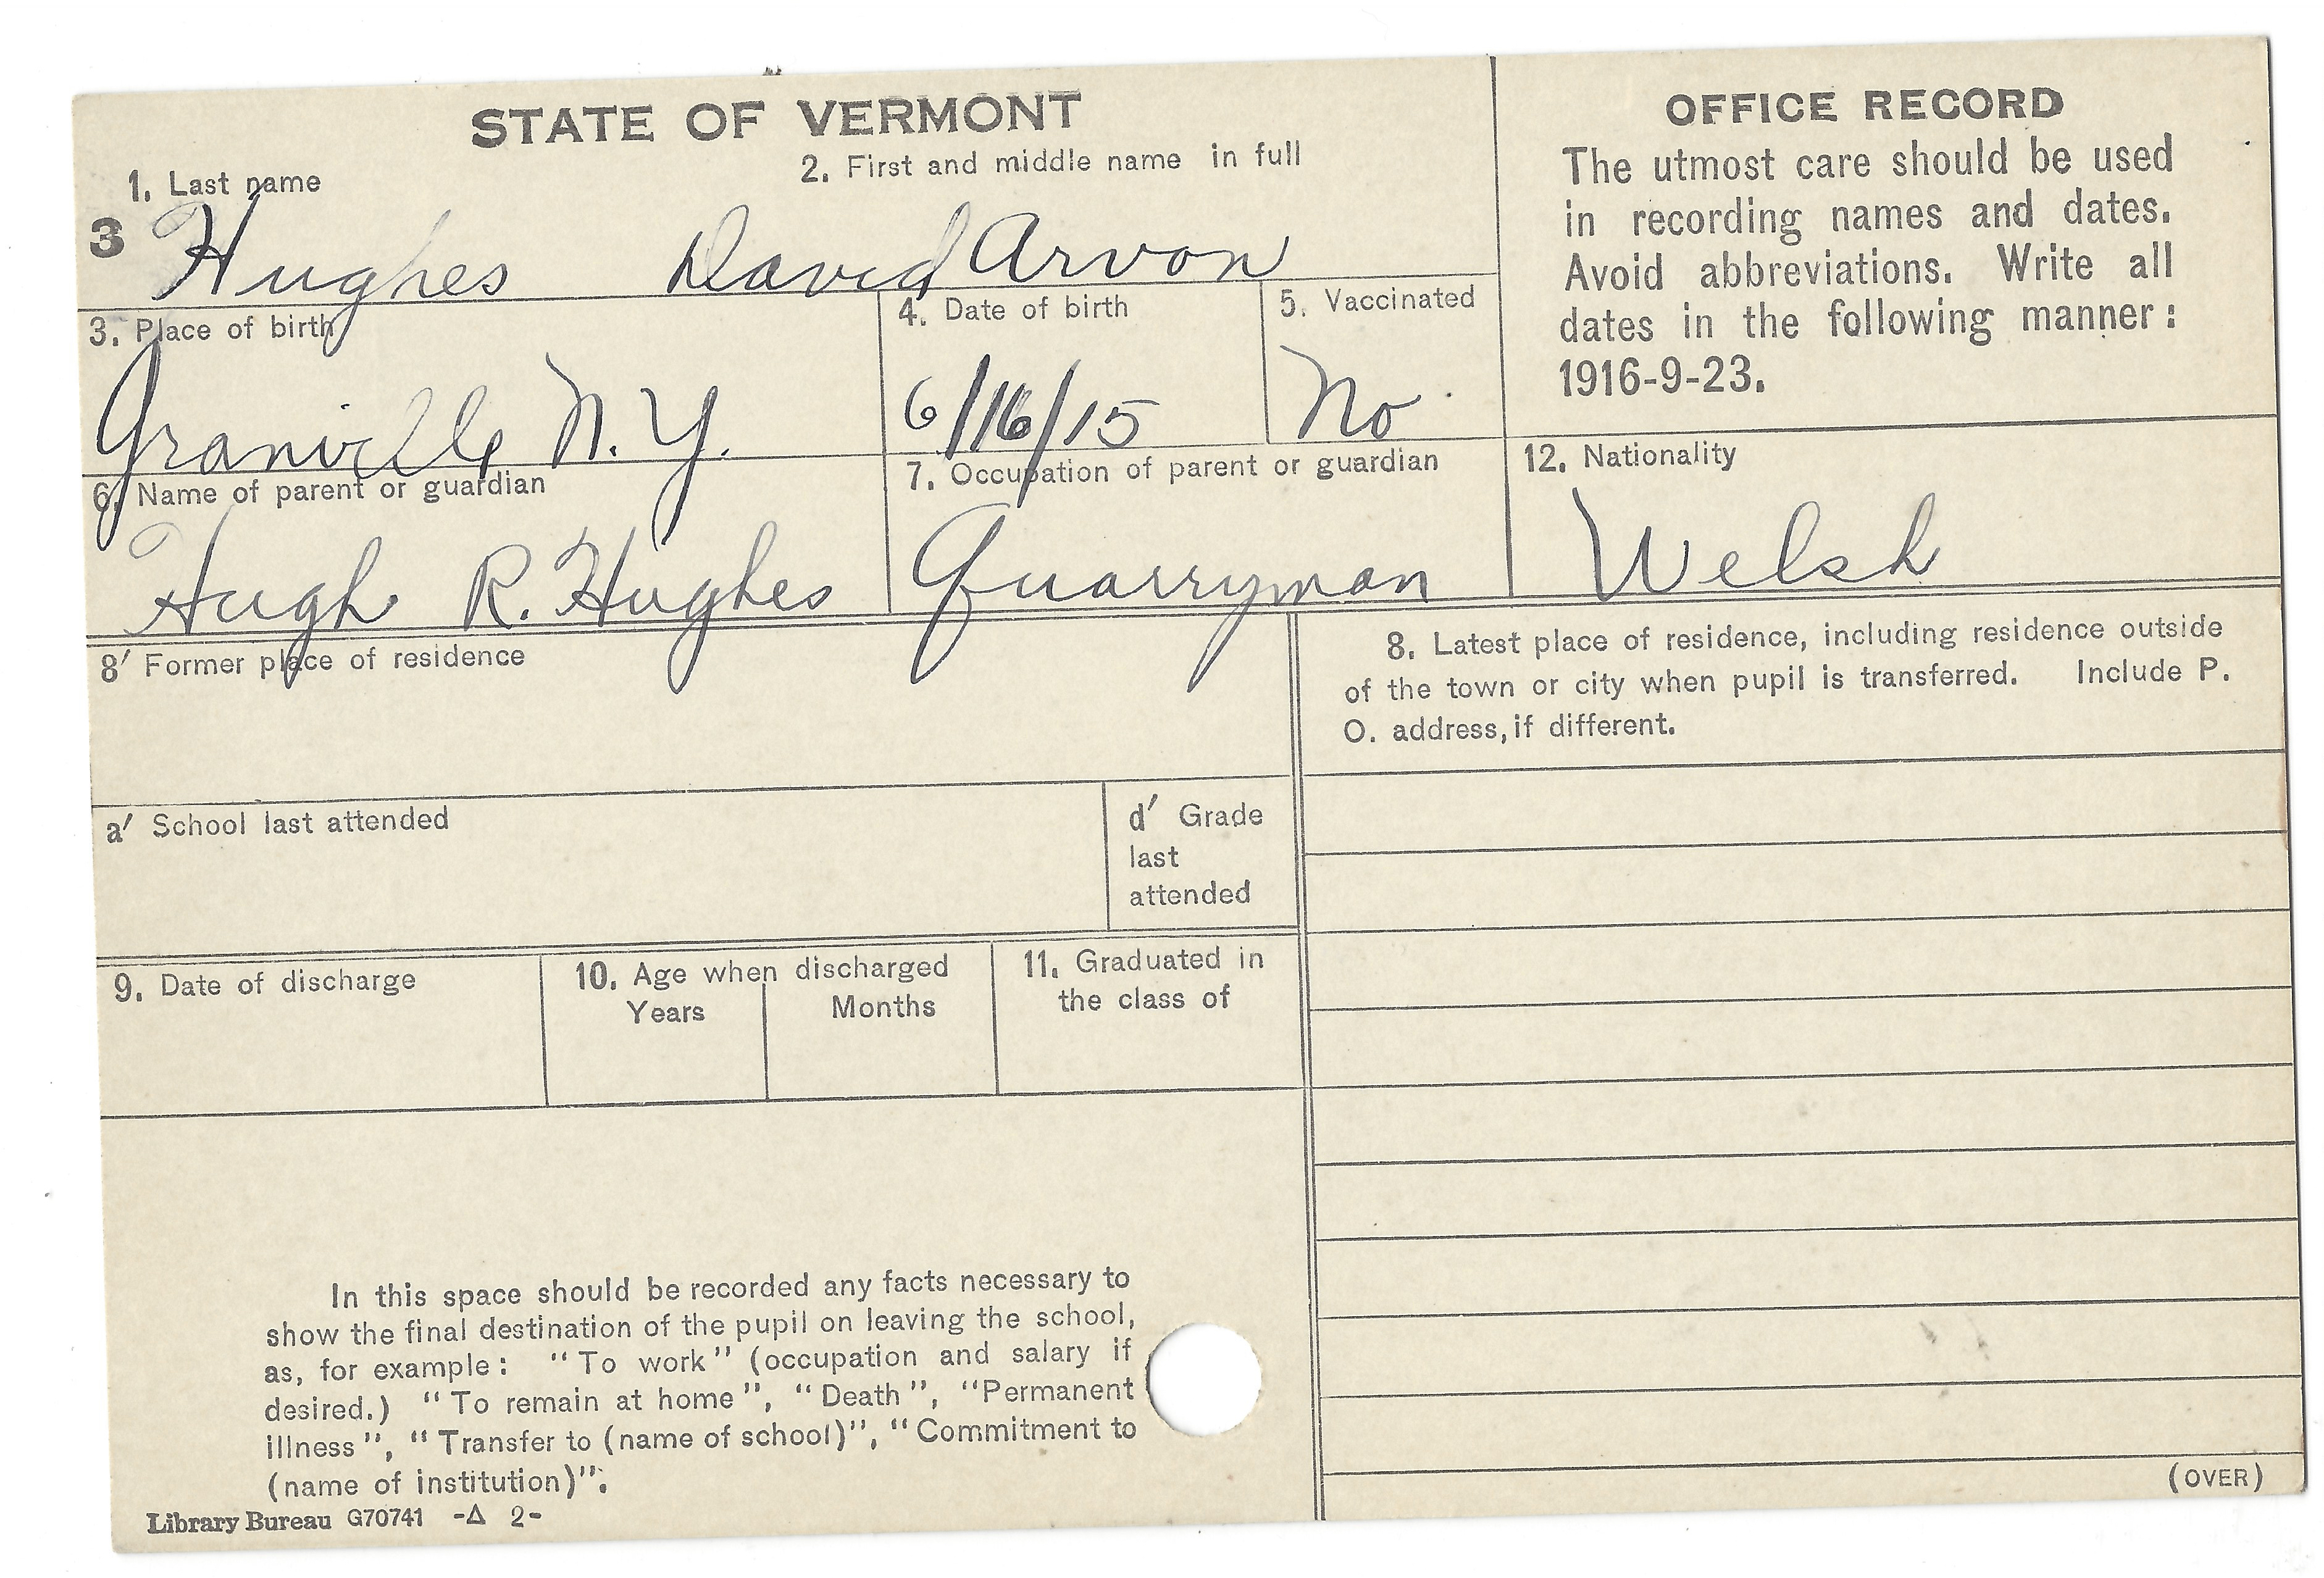 STATE OF VERMONT
1. Last name
2. First and middle name in full
3 Hughes David Arvon
3. Place of birth
4. Date of birth
5. Vaccinated
Granville N.Y.
6/16/15
No
6. Name of parent or guardian
7. Occupation of parent or guardian
Hugh R. Hughes
Quarryman
OFFICE RECORD
The utmost care should be used
in recording names and dates.
Avoid abbreviations. Write all
dates in the following manner:
1916-9-23.
12. Nationality
Welsh
8' Former place of residence
a' School last attended
d' Grade
last
attended
9. Date of discharge
10. Age when discharged
Years
Months
11. Graduated in
the class of
8. Latest place of residence, including residence outside
of the town or city when pupil is transferred. Include P.
O. address, if different.
In this space should be recorded any facts necessary to
show the final destination of the pupil on leaving the school,
as, for example: "To work" (occupation and salary if
desired.) "To remain at home", "Death", "Permanent
illness", "Transfer to (name of school)", "Commitment to
(name of institution)".
Library Bureau G70741 -Δ 2-
(OVER)